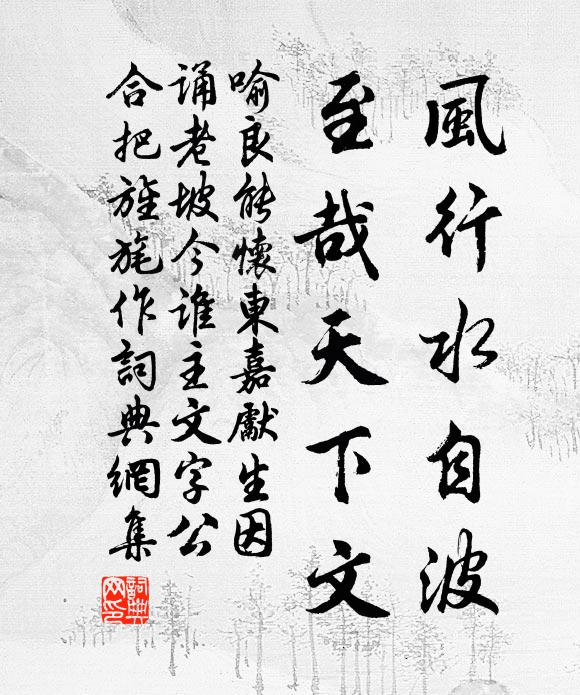 風行水自波
至哉天下文
喻良能懷東嘉獻生因
誦老坡今誰主文字公
合把旌旄作詞典網集
詞典網印